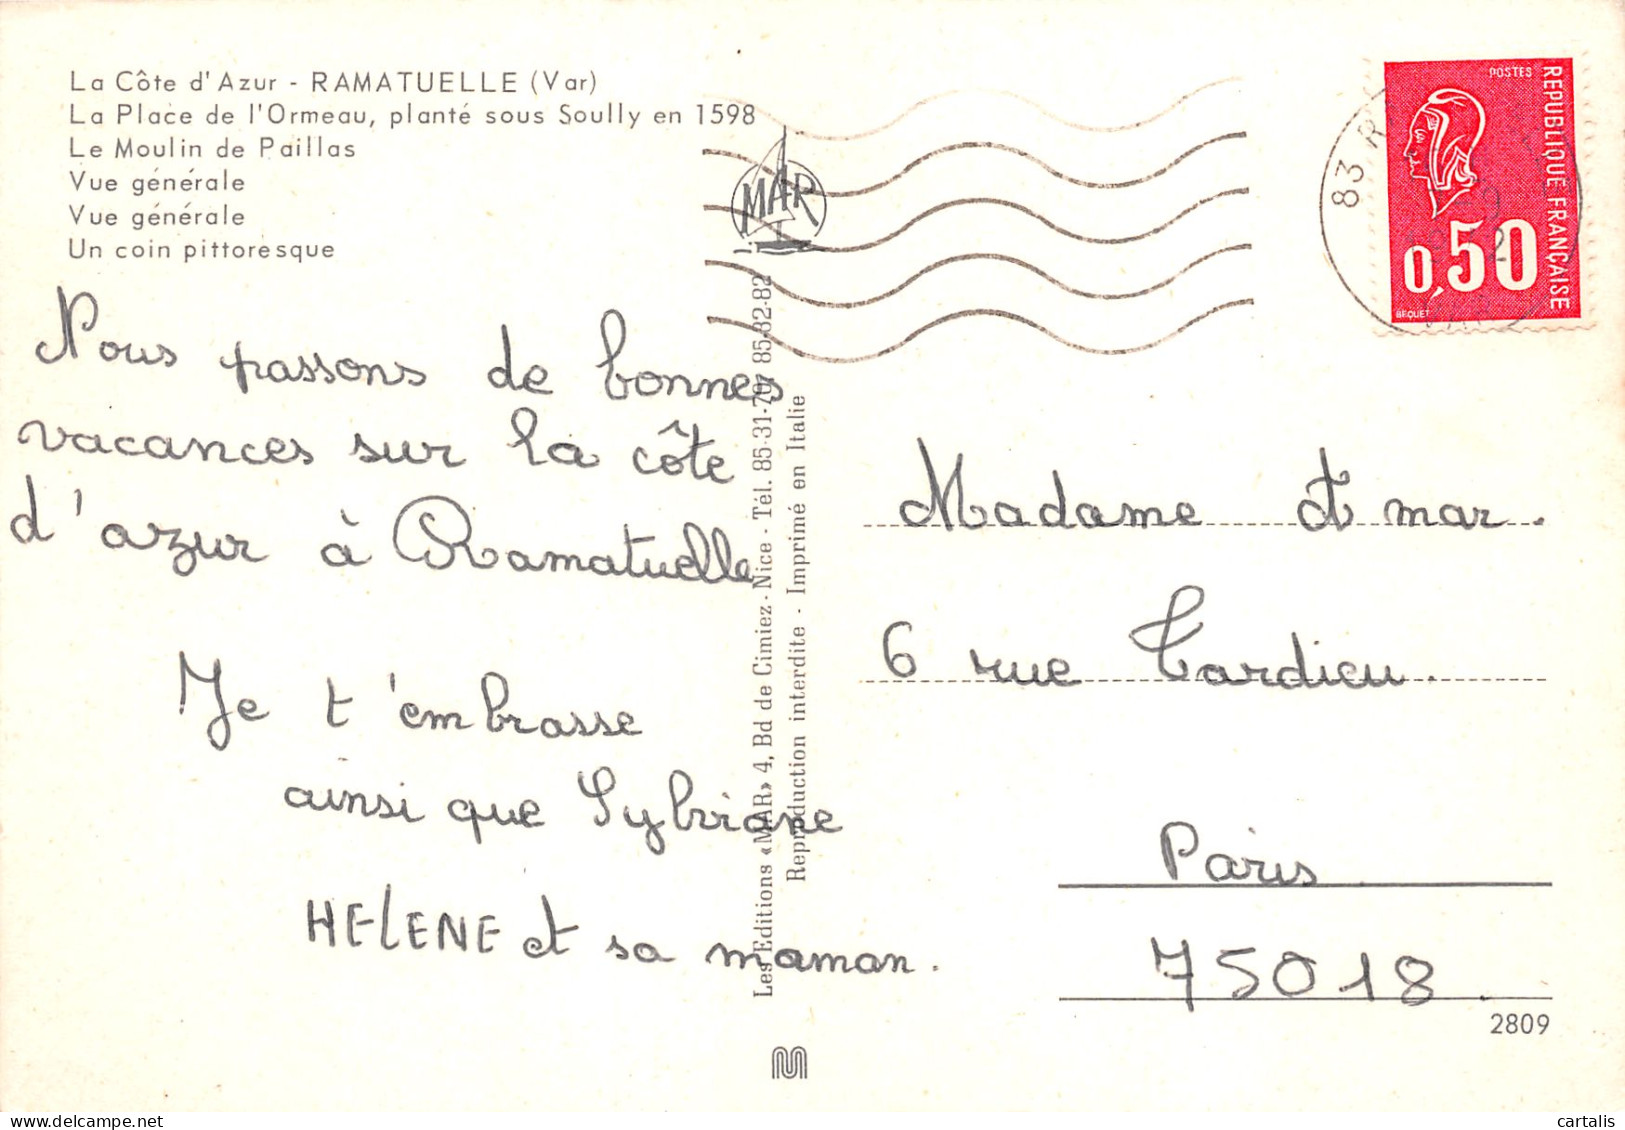 La Côte d'Azur - RAMATUELLE (Var)
La Place de l'Ormeau, planté sous Soully en 1598
Le Moulin de Paillas
Vue générale
Vue générale
Un coin pittoresque
Nous passons de bonnes
vacances sur la côte
d'azur à Ramatuelle
Je t'embrasse
ainsi que Sylviane
HELENE et sa maman.
MAR
Les Editions «MAR» 4, Bd de Cimiez - Nice - Tél. 85-31-70 / 85-82-82
Reproduction interdite - Imprimé en Italie
83 R
POSTES
REPUBLIQUE FRANÇAISE
0,50
BEQUET
Madame et mar.
6 rue Tardieu.
Paris
75018.
2809
cartalis